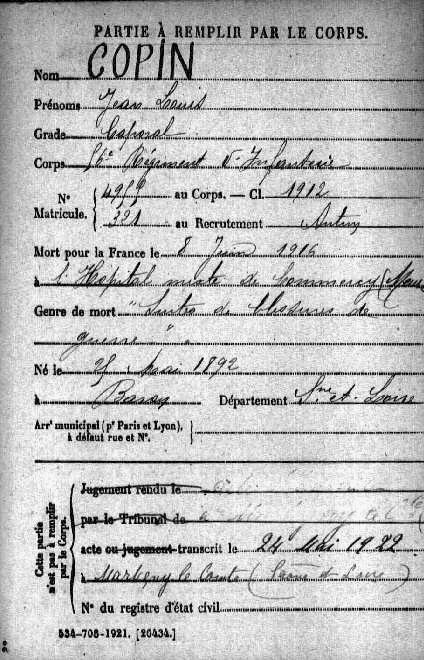 PARTIE À REMPLIR PAR LE CORPS.
Nom COPIN
Prénoms Jean Louis
Grade Caporal
Corps 56e Régiment d'Infanterie
N° Matricule. 4959 au Corps. — Cl. 1912
321 au Recrutement Autun
Mort pour la France le 8 Juin 1916
à l'Hôpital mixte de Commercy (Meuse
Genre de mort "Suites de blessures de
guerre"
Né le 25 Mai 1892
à Baron Département Sne et Loire
Arrt municipal (pr Paris et Lyon), à défaut rue et N°.
Cette partie n'est pas à remplir par le Corps.
Jugement rendu le
par le Tribunal de
acte ou jugement transcrit le 24 Mai 1922
à Martigny le Comte (Saône et Loire)
N° du registre d'état civil
534-708-1921. [26434.]